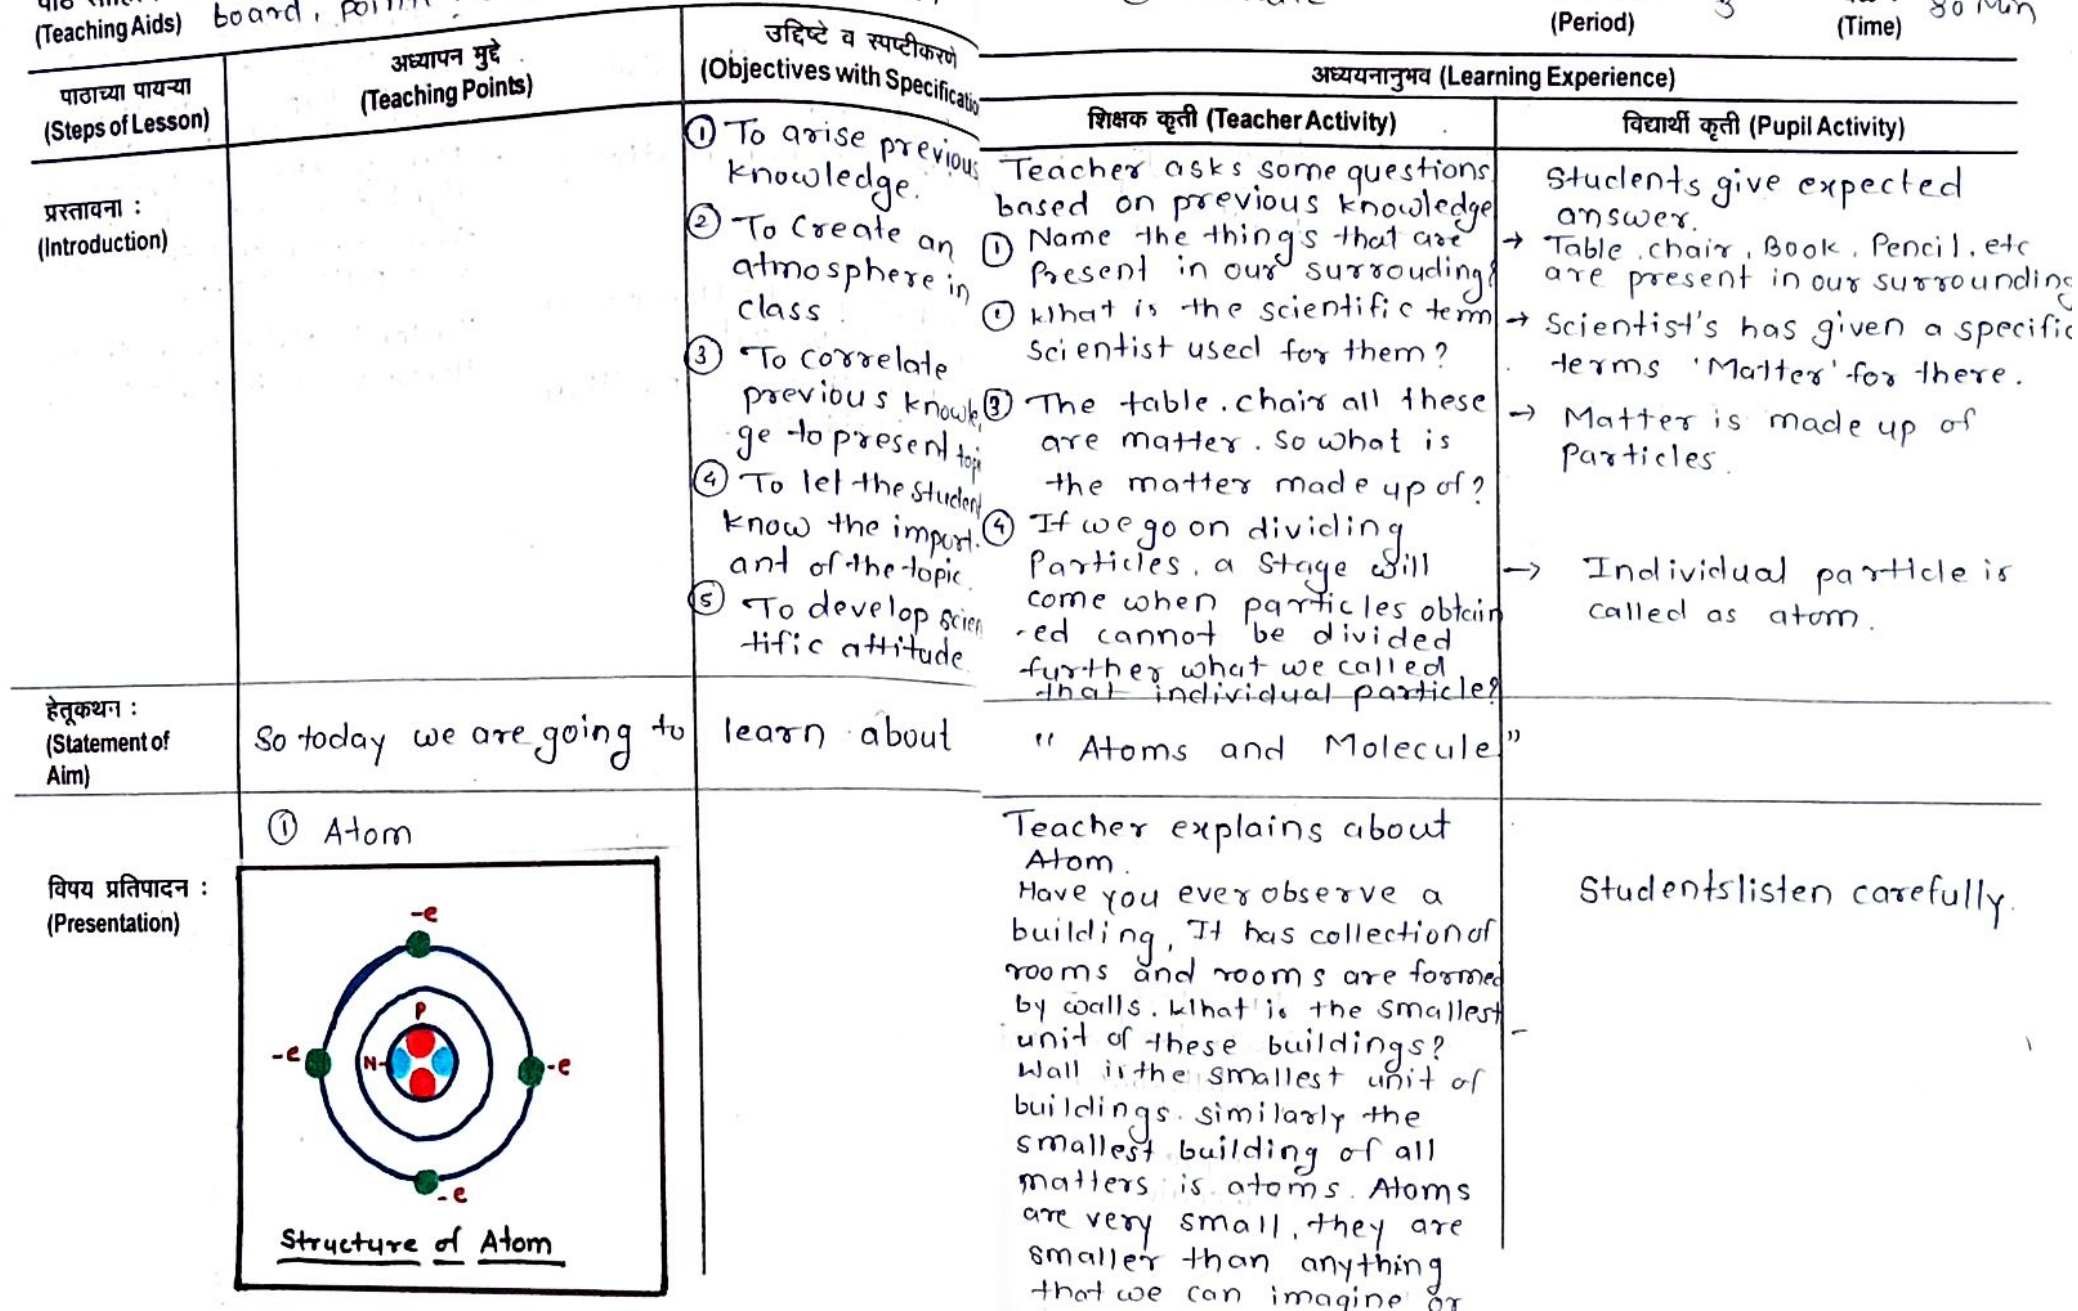 (Teaching Aids) board,
(Period)
(Time) 30 Min
पाठाच्या पायऱ्या
(Steps of Lesson)
अध्यापन मुद्दे
(Teaching Points)
उद्दिष्टे व स्पष्टीकरणे
(Objectives with Specificatio
अध्ययनानुभव (Learning Experience)
शिक्षक कृती (Teacher Activity)
विद्यार्थी कृती (Pupil Activity)
प्रस्तावना :
(Introduction)
① To arise previous
knowledge.
② To Create an
atmosphere in
class.
③ To correlate
previous knowle
ge to present topi
④ To let the student
know the import.
ant of the topic.
⑤ To develop scien
tific attitude
Teacher asks some questions
based on previous knowledge
① Name the things that are
Present in our surrouding?
① What is the scientific term
Scientist used for them?
③ The table. chair all these
are matter. so what is
the matter made up of?
④ If we go on dividing
Particles, a stage will
come when particles obtain
-ed cannot be divided
further what we called
that individual particle?
Students give expected
answer.
→ Table, chair, Book, Pencil, etc
are present in our surrounding
→ Scientist's has given a specific
terms 'Matter' for there.
→ Matter is made up of
Particles.
→ Individual particle is
called as atom.
हेतूकथन :
(Statement of
Aim)
So today we are going to learn about " Atoms and Molecule"
विषय प्रतिपादन :
(Presentation)
① Atom
-e
P
-e
N-
-e
-e
Structure of Atom
Teacher explains about
Atom.
Have you ever observe a
building, It has collection of
rooms and rooms are formed
by walls. What is the smallest
unit of these buildings?
Wall is the smallest unit of
buildings. similarly the
smallest building of all
matters is atoms. Atoms
are very small, they are
smaller than anything
that we can imagine or
Students listen carefully.